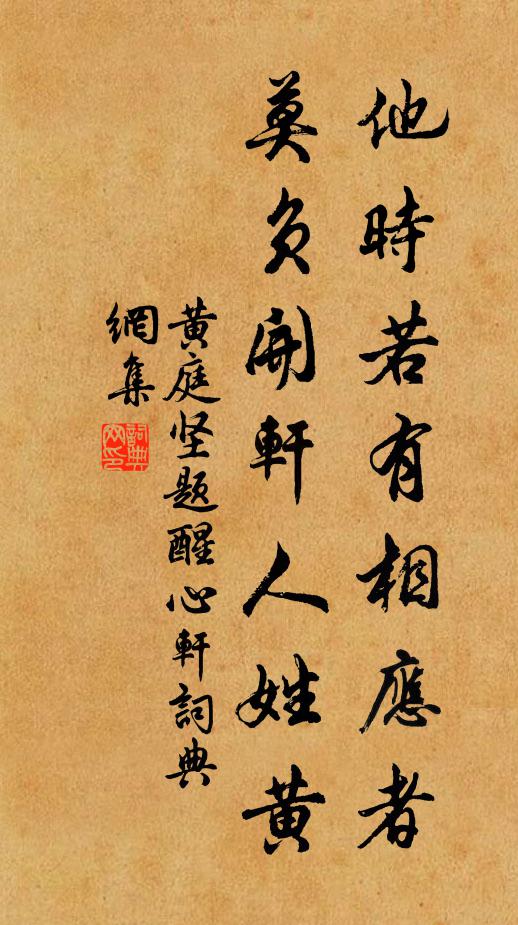 他時若有相應者
莫負開軒人姓黃
黃庭坚題醒心軒詞典
網集
詞典
网印